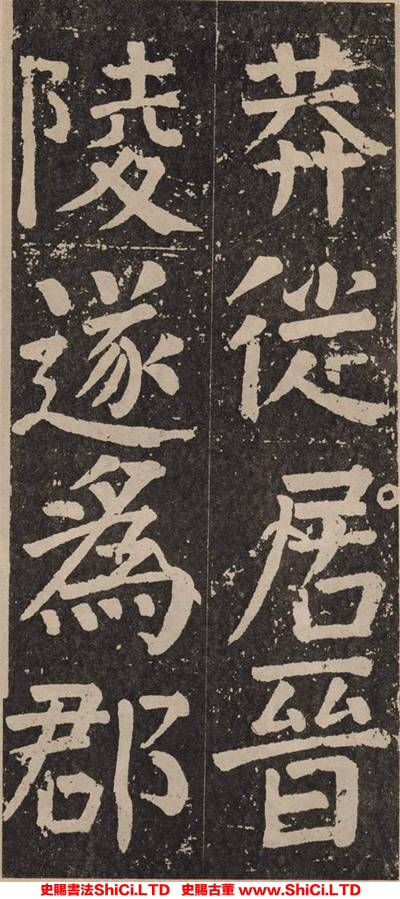 莽從居晉
陵遂為郡
史賜書法ShiCi.LTD 史賜古董 www.ShiCi.LTD